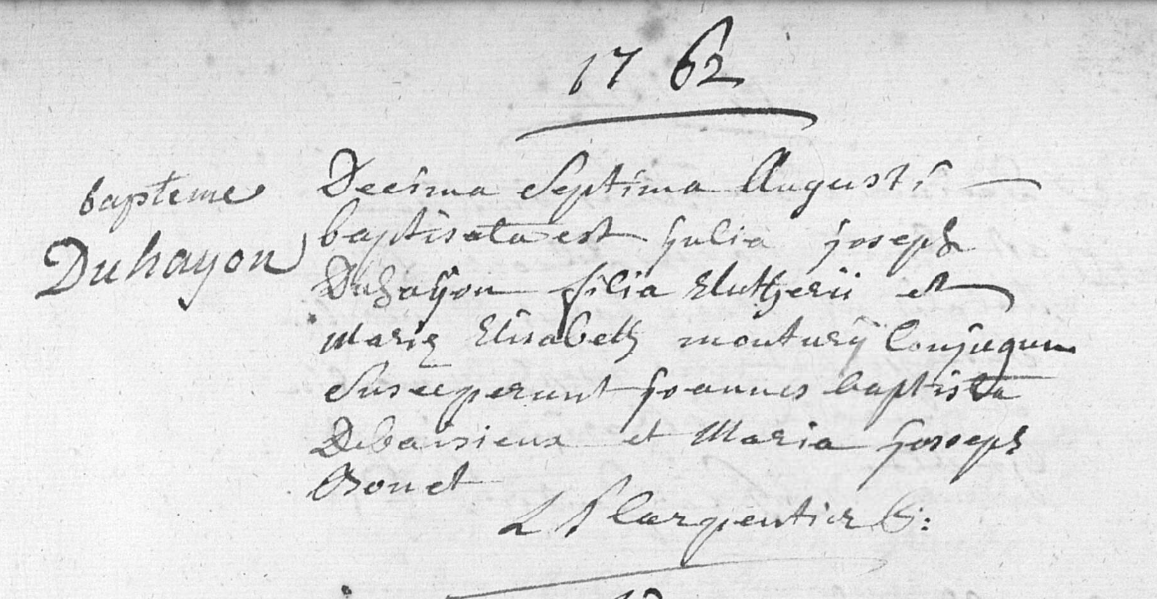 1762
bapteme
Duhayon
Decima Septima Augusti
baptisata est Julia Joseph
Duhayon filia Elutherii et
Mariæ Elisabeth moutury Conjugum
Susceperunt Joannes baptista
Debaisieux et Maria Joseph
Bonet